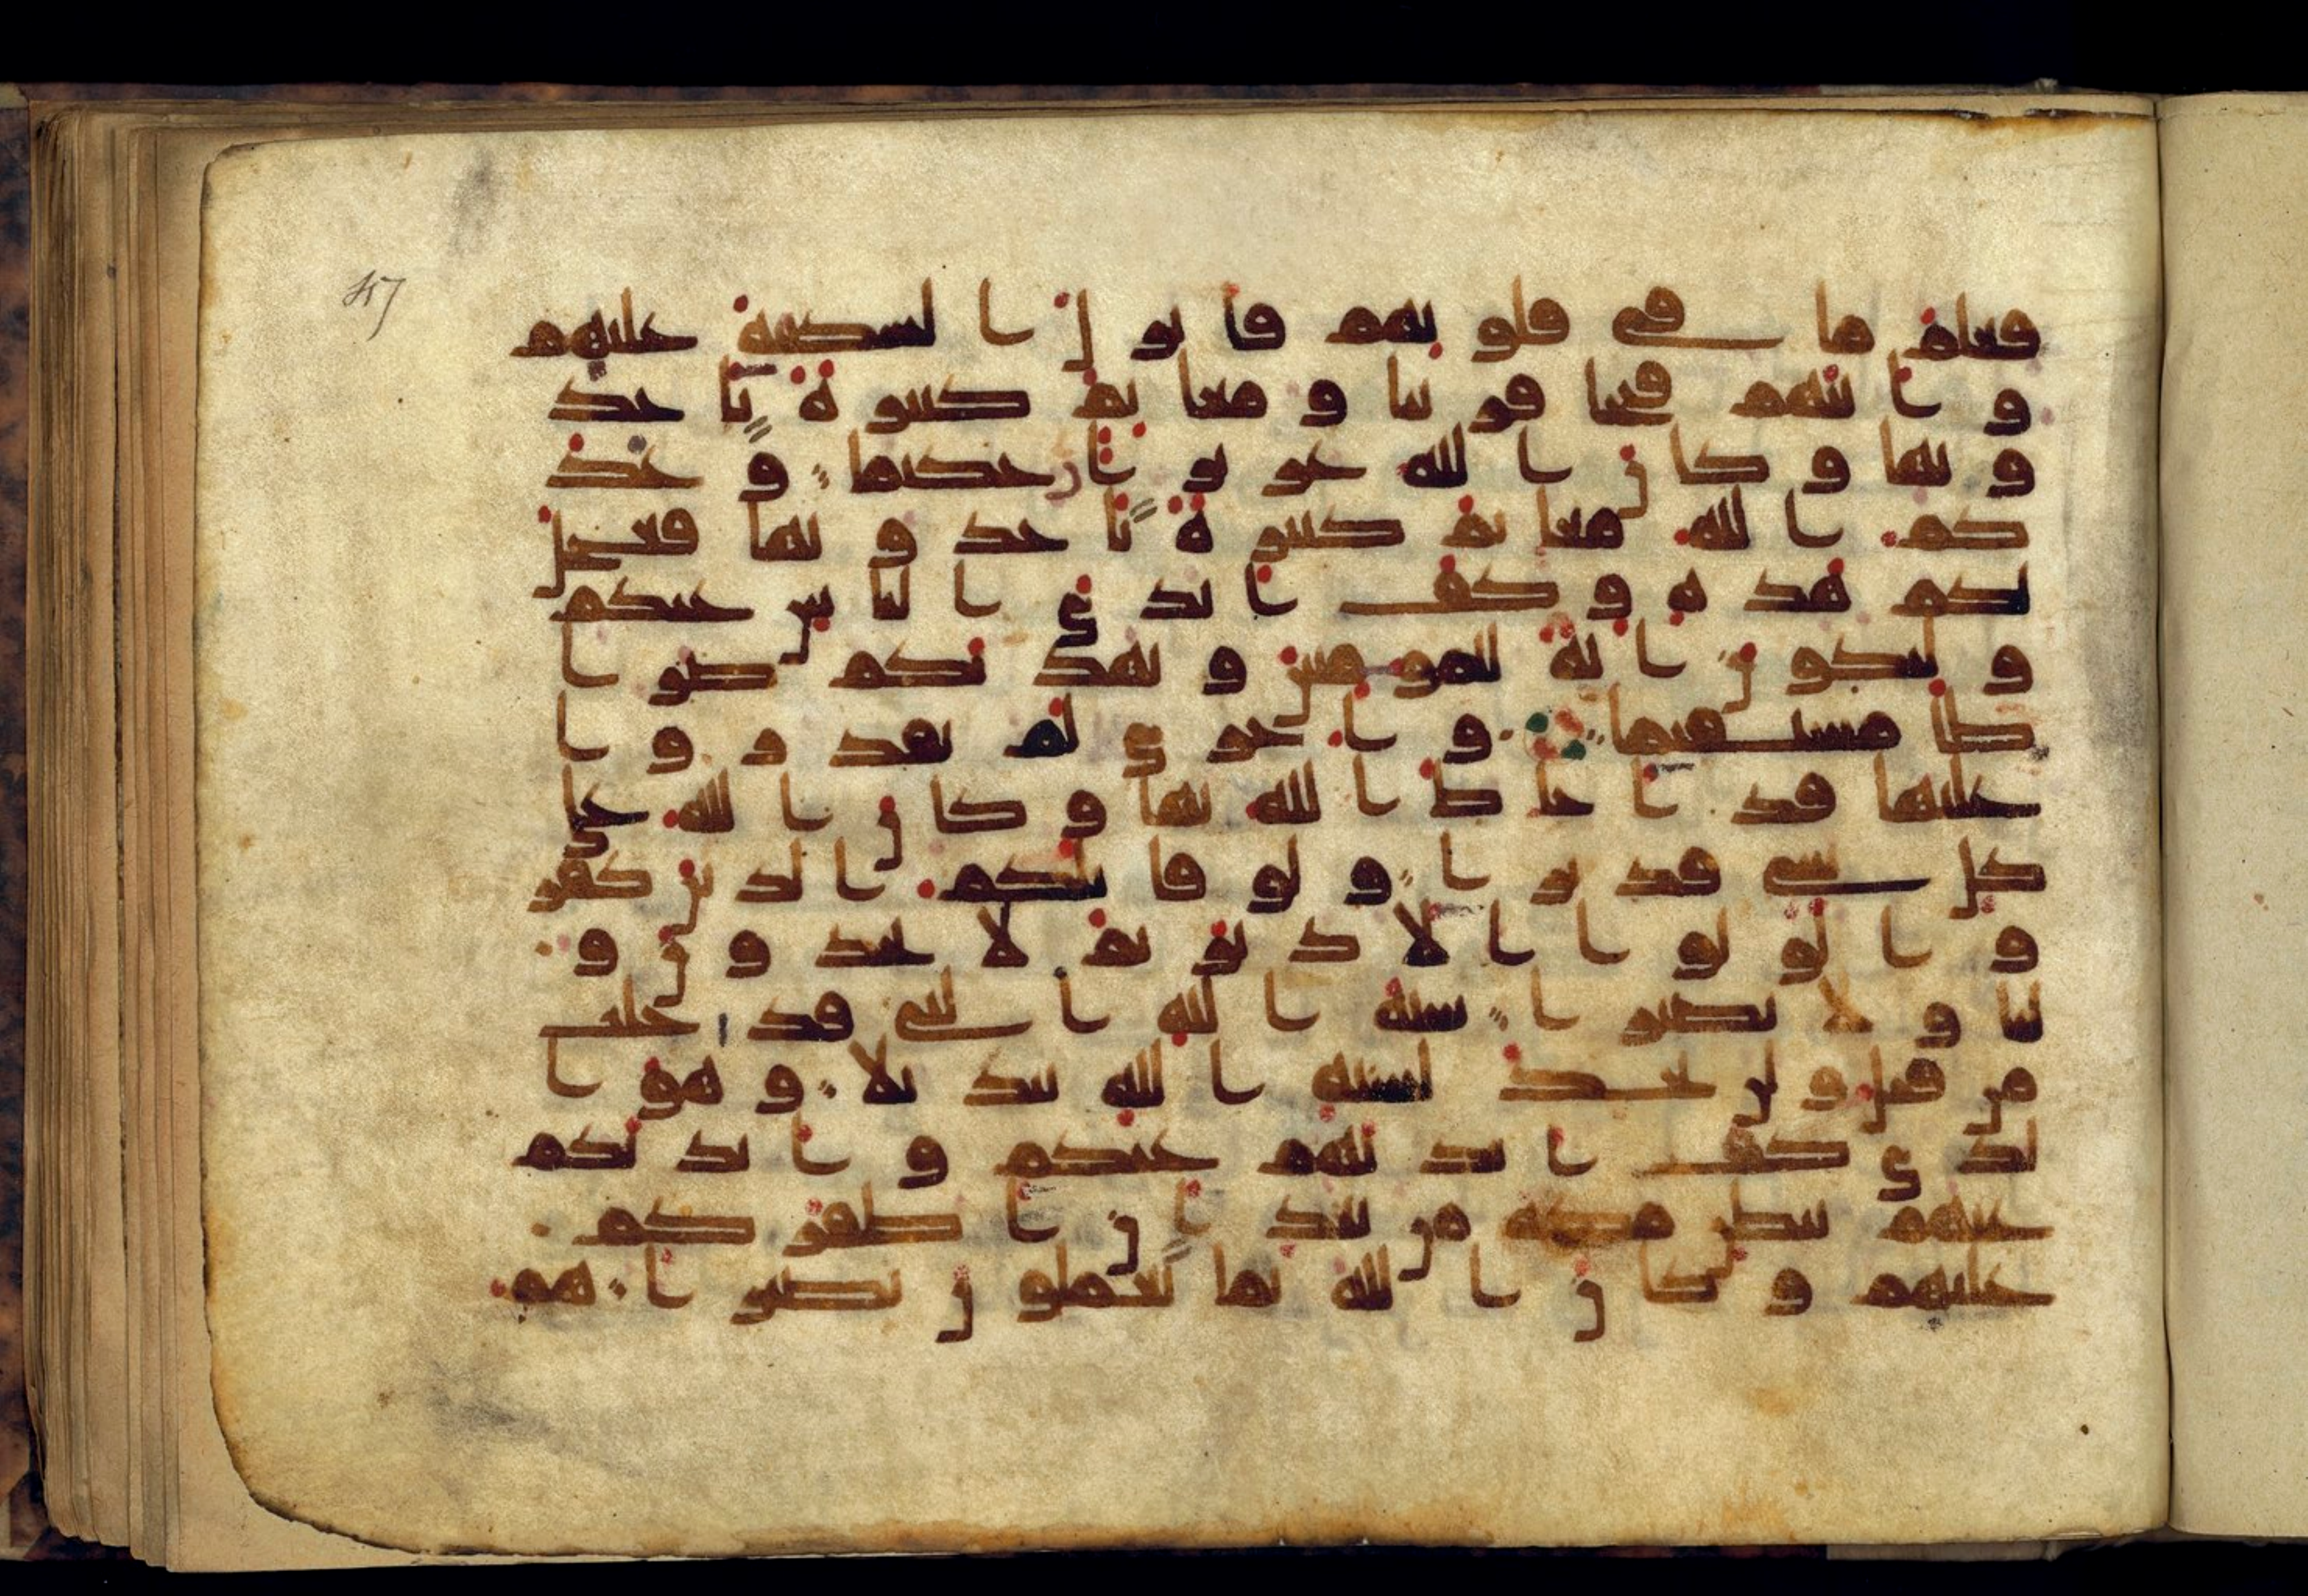 فعلم ما في قلوبهم فانزل السكينة عليهم
و اثبهم فتحا قريبا و مغانم كثيرة ياخذ
ونها و كان الله عزيزا حكيما وعد
كم الله مغانم كثيرة تاخذونها فعجل
لكم هذه و كف ايدي الناس عنكم
و لتكون اية للمومنين و يهديكم صرا
طا مستقيما و اخرى لم تقدروا
عليها قد احاط الله بها و كان الله على
كل شي قديرا و لو قاتلكم الذين كفر
وا لولوا الادبر ثم لا يجدون و
ليا و لا نصيرا سنة الله التي قد خلت
من قبل و لن تجد لسنة الله تبديلا و هو ا
لذي كف ايديهم عنكم و ايديكم
عنهم ببطن مكة من بعد ان اظفركم
عليهم و كان الله بما تعملون بصيرا هم